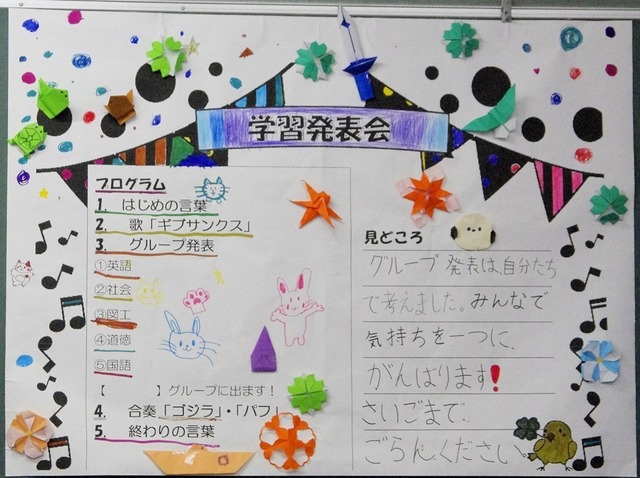 学習発表会
プログラム
1. はじめの言葉
2. 歌「ギブサンクス」
3. グループ発表
①英語
②社会
③図工
④道徳
⑤国語
【　　　】グループに出ます!
4. 合奏「ゴジラ」・「パフ」
5. 終わりの言葉
見どころ
グループ発表は、自分たち
で考えました。みんなで
気持ちを一つに、
がんばります!
さいごまで、
ごらんください。